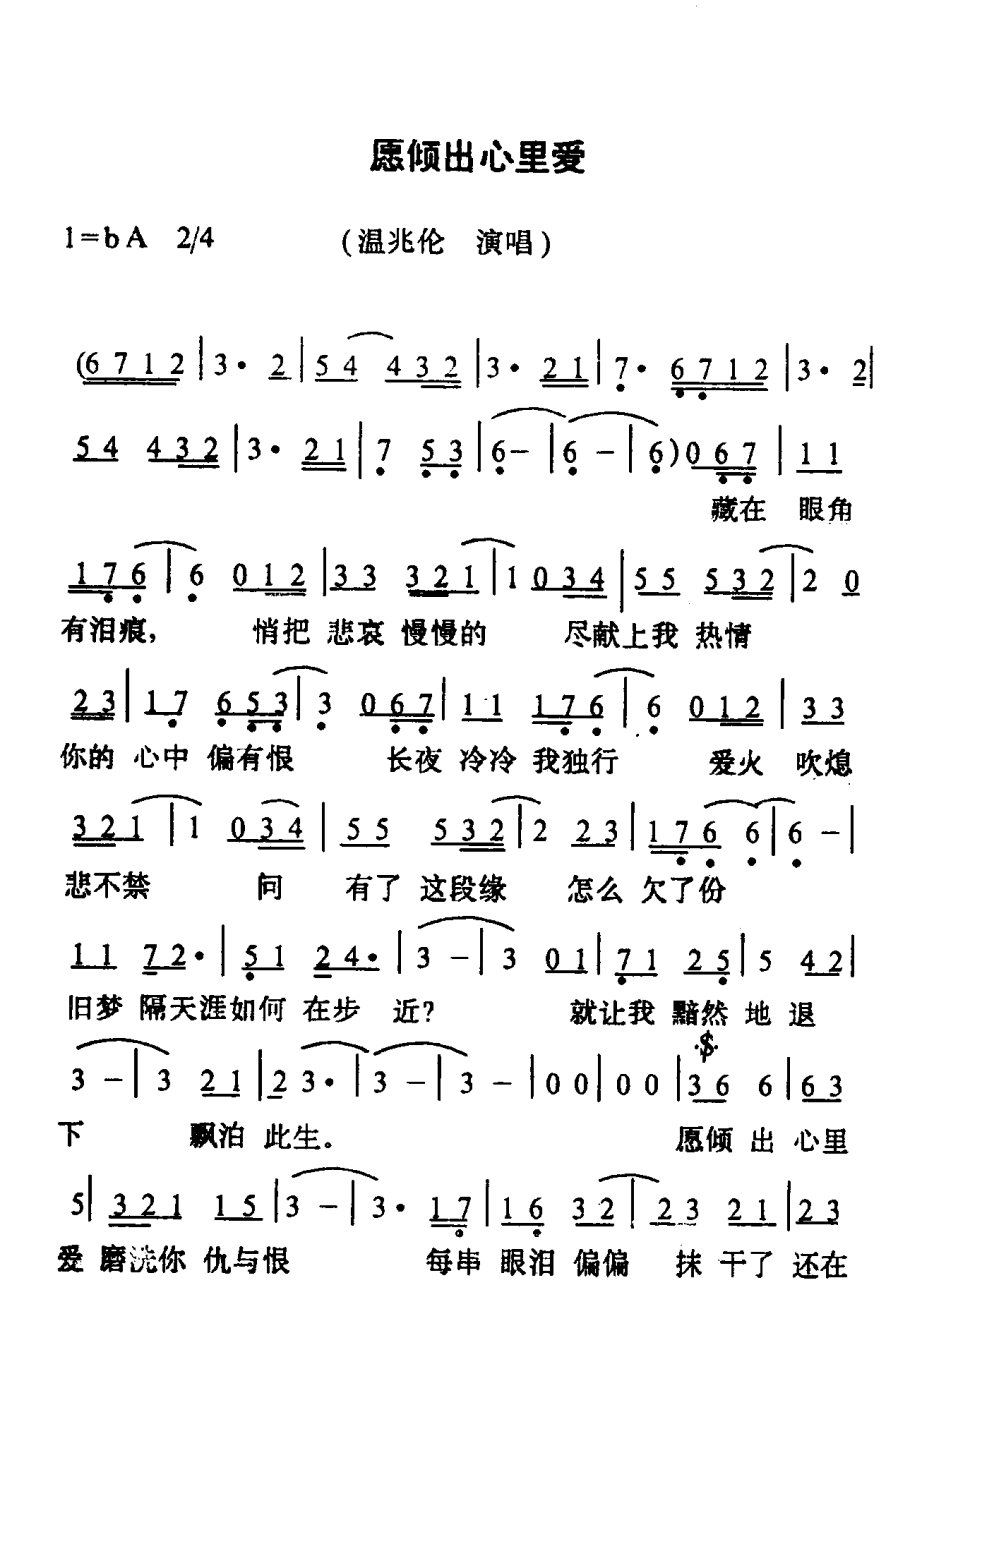 愿倾出心里爱
1=bA 2/4 (温兆伦 演唱)
(6 7 1 2 | 3· 2 | 5 4 4 3 2 | 3· 2 1 | 7· 6 7 1 2 | 3· 2 |
5 4 4 3 2 | 3· 2 1 | 7 5 3 | 6 - | 6 - | 6 ) 0 6 7 | 1 1
藏在 眼角
1 7 6 | 6 0 1 2 | 3 3 3 2 1 | 1 0 3 4 | 5 5 5 3 2 | 2 0
有泪痕, 悄把 悲哀 慢慢的 尽献上我 热情
2 3 | 1 7 6 5 3 | 3 0 6 7 | 1 1 1 7 6 | 6 0 1 2 | 3 3
你的 心中 偏有恨 长夜 冷冷 我独行 爱火 吹熄
3 2 1 | 1 0 3 4 | 5 5 5 3 2 | 2 2 3 | 1 7 6 6 | 6 - |
悲不禁 问 有了 这段缘 怎么 欠了份
1 1 7 2· | 5 1 2 4· | 3 - | 3 0 1 | 7 1 2 5 | 5 4 2 |
旧梦 隔天涯如何 在步 近? 就让我 黯然 地 退
𝄋
3 - | 3 2 1 | 2 3· | 3 - | 3 - | 0 0 | 0 0 | 3 6 6 | 6 3
下 飘泊 此生。 愿倾 出 心里
5 | 3 2 1 1 5 | 3 - | 3· 1 7 | 1 6 3 2 | 2 3 2 1 | 2 3
爱 磨洗你 仇与恨 每串 眼泪 偏偏 抹 干了 还在